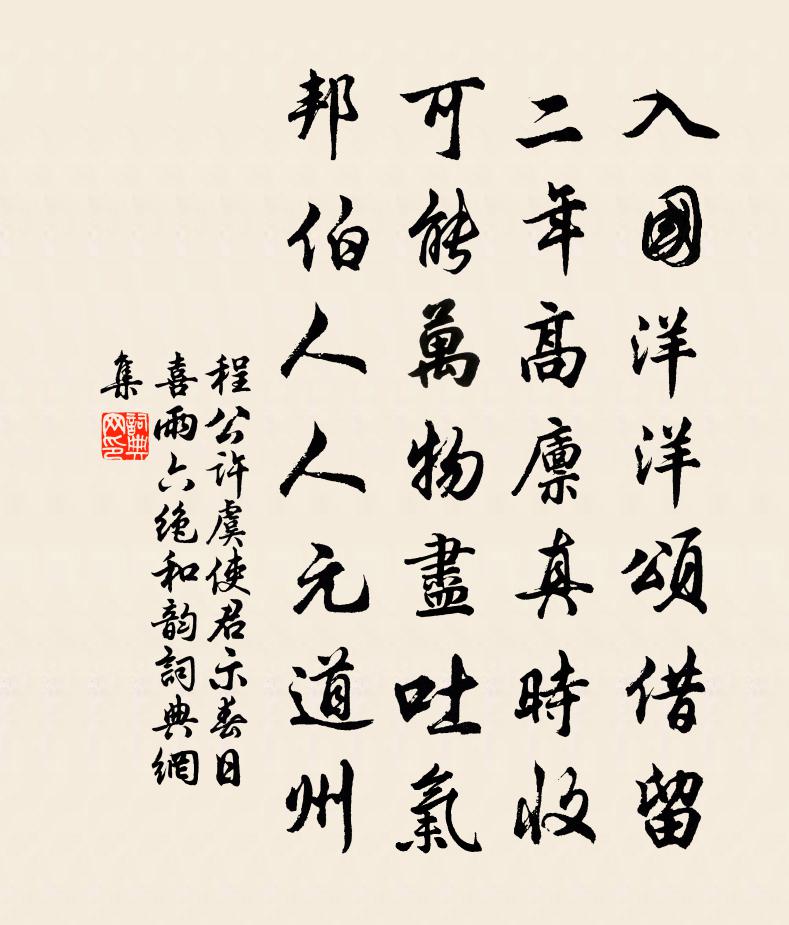 入國洋洋頌借留
二年高廪真時收
可能萬物盡吐氣
邦伯人人元道州
程公許虞使君示春日
喜雨六絶和韵詞典網
集
詞典网印